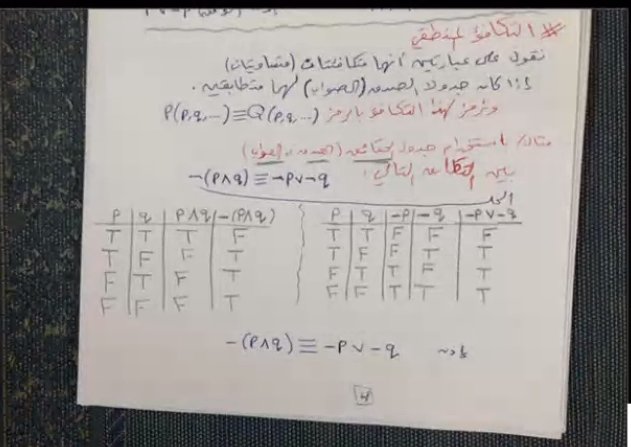 # التكافؤ المنطقي
نقول على عبارتين أنها متكافئتان (متساويتان)
إذا كان جدولا الصدق (الصواب) لهما متطابقين.
ونرمز لهذا التكافؤ بالرمز P(P,q,...)≡Q(P,q,...)
مثال/ باستخدام جدول الحقائق (الصدق، الصواب)
بين التكافؤ التالي: -(P∧q) ≡ -P∨-q
الحل
P | q | P∧q | -(P∧q) P | q | -P | -q | -P∨-q
T | T | T | F T | T | F | F | F
T | F | F | T T | F | F | T | T
F | T | F | T F | T | T | F | T
F | F | F | T F | F | T | T | T
-(P∧q) ≡ -P∨-q